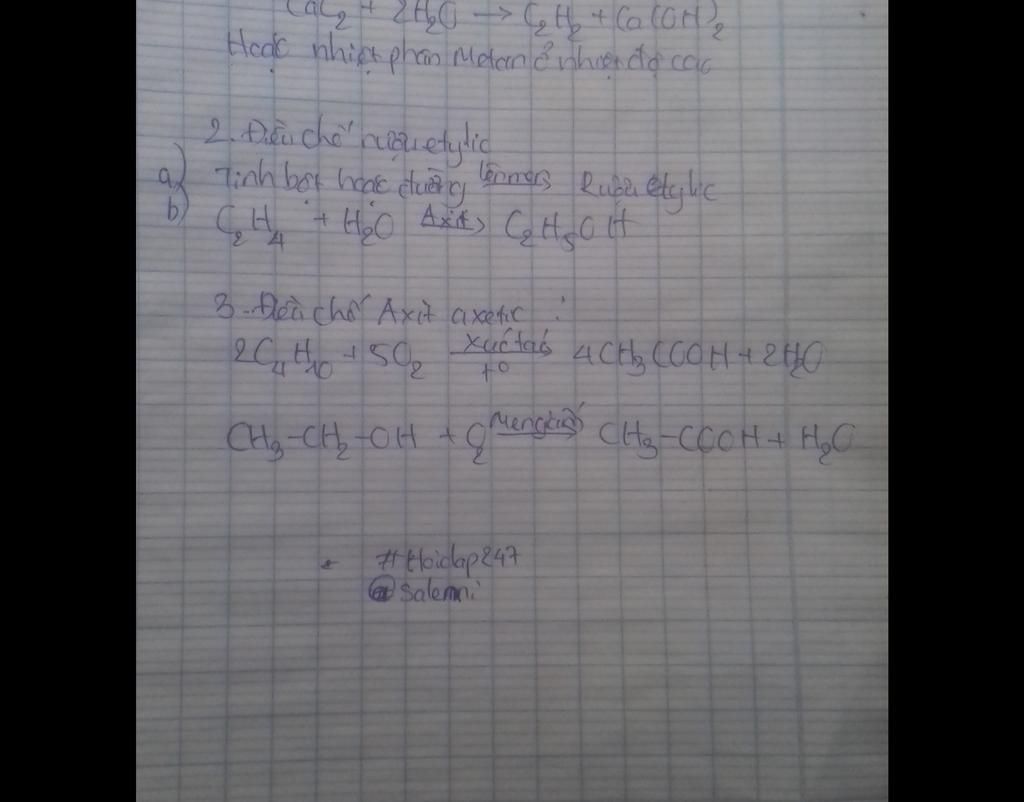 CaC2 + 2H2O → C2H2 + Ca(OH)2
Hoặc nhiệt phân Metan ở nhiệt độ cao
2. Điều chế rượu etylic
a) Tinh bột hoặc đường lên men→ Rượu etylic
b) C2H4 + H2O Axit→ C2H5OH
3. Điều chế Axit axetic :
2C4H10 + 5O2 xúc tác→ t° 4CH3COOH + 2H2O
CH3-CH2-OH + O2 Men giấm→ CH3-COOH + H2O
#Hoidap247
@Salemni